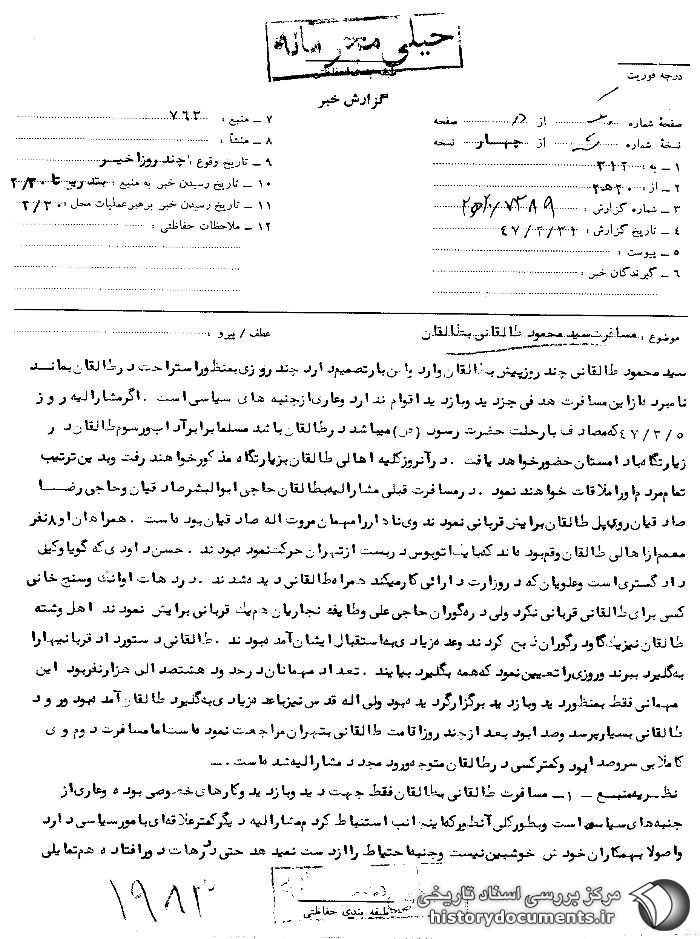 خیلی محرمانه
طبقه بندی حفاظتی
گزارش خبر
درجه فوریت
صفحه شماره از صفحه
نسخه شماره از چهار نسخه
۱ – به : ۳۱۲
۲ – از : ۲۰ ه‍ ۲
۳ – شماره گزارش :
۴ – تاریخ گزارش :
۵ – پیوست :
۶ – گیرندگان خبر :
۷ – منبع : ۷۶۲
۸ – منشأ :
۹ – تاریخ وقوع : چند روز اخیر
۱۰ – تاریخ رسیدن خبر به منبع : بتدریج تا ۲/۳۰
۱۱ – تاریخ رسیدن خبر برهبر عملیات محل : ۲/۳۰
۱۲ – ملاحظات حفاظتی :
موضوع : مسافرت سید محمود طالقانی بطالقان
عطف / پیرو :
سید محمود طالقانی چند روز پیش بطالقان وارد و این بار تصمیم دارد چند روزی بمنظور استراحت در طالقان بماند
نامبرده از این مسافرت هدفی جز دید و بازدید اقوام ندارد و عاری از جنبه های سیاسی است . اگر مشارالیه روز
۴۷/۳/۵ که مصادف با رحلت حضرت رسول (ص) میباشد در طالقان باشد مسلما برابر آداب و رسوم طالقان در
زیارتگاه حضور خواهد یافت . در آنروز کلیه اهالی طالقان بزیارتگاه مذکور خواهند رفت و بدین ترتیب
تمام مردم او را ملاقات خواهند نمود . در مسافرت قبلی مشارالیه بطالقان حاجی ابوالبشر صادقیان و حاجی رضا
صادقیان روی پل طالقان برایش قربانی نمودند وی ناهار را مهمان مروت اله صادقیان بوده است . همراهان او ۸ نفر
معمم از اهالی طالقان و قم بوده اند که با یک اتوبوس دربست از تهران حرکت نموده بودند . حسن داودی که گویا وکیل
دادگستری است و علویان که در وزارت دارائی کار میکند همراه طالقانی دیده شدند . در دهات اوانک و سنج خانی
کسی برای طالقانی قربانی نکرد ولی در گوران حاجی علی و طایفه نجاریان هم یک قربانی برایش نمودند اهل وشته
طالقان نیز یک گاو در گوران ذبح کردند و عده زیادی به استقبال ایشان آمده بودند . طالقانی دستور داد قربانیها را
به گلیرد ببرند و روزی را تعیین نمود که همه بگلیرد بیایند . تعداد مهمانان در حدود هشتصد الی هزار نفر بود این
مهمانی فقط بمنظور دید و بازدید برگزار گردیده بود ولی اله قدس نیز با عده زیادی به گلیرد طالقان آمده بود ورود
طالقانی بسیار پر سر و صدا بود بعد از چند روز اقامت طالقانی بتهران مراجعت نموده است اما مسافرت دوم وی
کاملا بی سر و صدا بود و کمتر کسی در طالقان متوجه ورود مجدد مشارالیه شده است .
نظریه منبع – ۱ – مسافرت طالقانی بطالقان فقط جهت دید و بازدید و کارهای خصوصی بوده و عاری از
جنبه های سیاسی است و بطور کلی آنطور که اینجانب استنباط کردم مشارالیه دیگر کمتر علاقه ای بامور سیاسی دارد
و اصولا بهمکاران خودش خوشبین نیست و جنبه احتیاط را از دست نمیدهد حتی در دهات دور افتاده هم تمایلی
طبقه بندی حفاظتی
مرکز بررسی اسناد تاریخی
historydocuments.ir